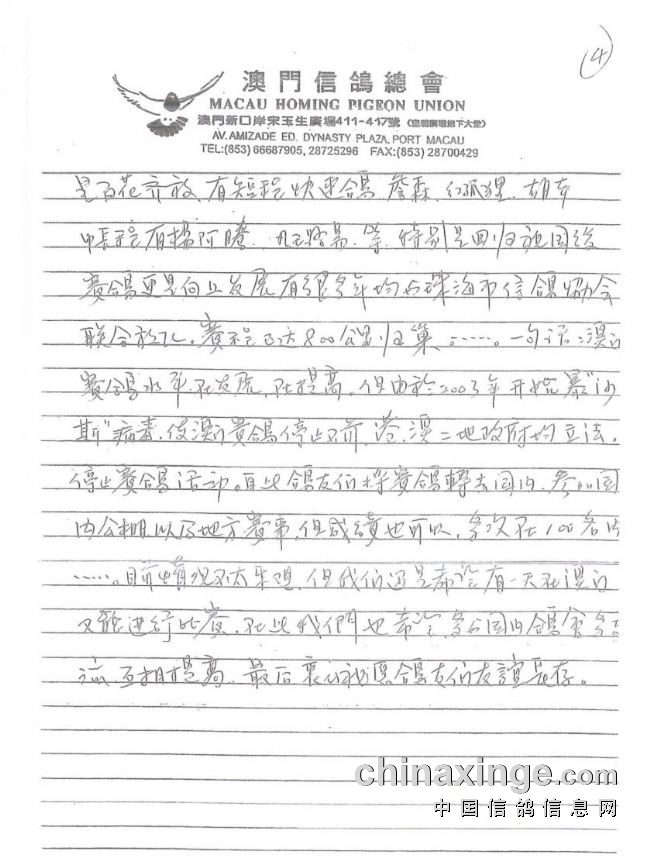 (4)
澳門信鴿總會
MACAU HOMING PIGEON UNION
澳門新口岸宋玉生廣場411-417號(皇朝廣場地下大堂)
AV. AMIZADE ED. DYNASTY PLAZA, PORT MACAU
TEL:(853) 66687905, 28725296 FAX:(853) 28700429
是百花齐放,有短程快速鸽詹森,红狐狸,胡本
中長程有杨阿腾,凡龙 等,特别是回归祖国後
賽鸽更是向上发展有很多年均与珠海市信鴿協会
联合放飞,賽程已达800公里归巢。……一句话:澳门
賽鸽水平在发展,在提高,但由於2003年开始暴“沙
斯”病毒,使澳门賽鸽停止不前,港、澳二地政府均立法,
停止賽鸽活动。自此鸽友们将賽鴿轉去国内,参加国
内公棚以及地方賽事,但成績也可以,多次在100名内
……。目前情况不太乐观,但我们还是希望有一天在澳门
又能进行比賽,在此我們也希望,多与国内鸽会多
流,互相提高,最后衷心祝愿鸽友们友誼長存。
chinaxinge.com
中国信鸽信息网